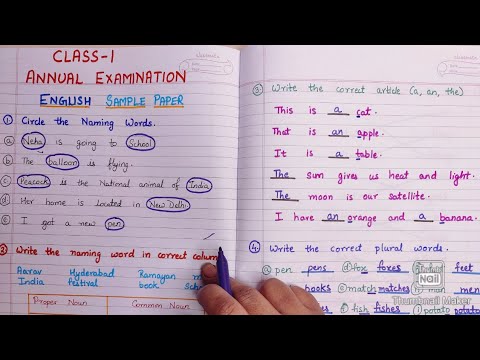 CLASS-1
ANNUAL EXAMINATION
ENGLISH SAMPLE PAPER
① Circle the Naming Words.
ⓐ Neha is going to School
ⓑ The balloon is flying.
ⓒ Peacock is the National animal of India
ⓓ Her home is located in New Delhi.
ⓔ I got a new pen
③ Write the naming word in correct colum
Aarav Hyderabad Ramayan
India festival book
Proper Noun Common Noun
② Write the correct article (a, an, the)
This is a cat.
That is an apple.
It is a table.
The sun gives us heat and light.
The moon is our satellite.
I have an orange and a banana.
④ Write the correct plural words.
ⓐ pen pens ⓓ fox foxes feet
hooks ⓔ match matches man men
ⓕ fish fishes ⓘ potato potato
Nail
Thumbnail Maker